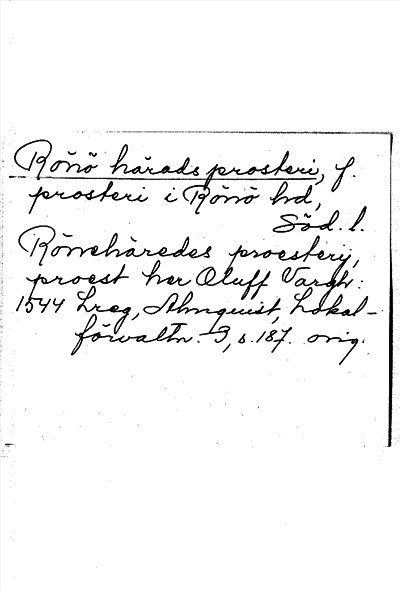 Rönö härads prosteri, f.
prosteri i Rönö hd,
Söd. l.
Rönehäredes proestery,
proest her Oluff Vargh:
1544 Lreg, Almquist, Lokal-
förvaltn. I 3, s. 187. orig.